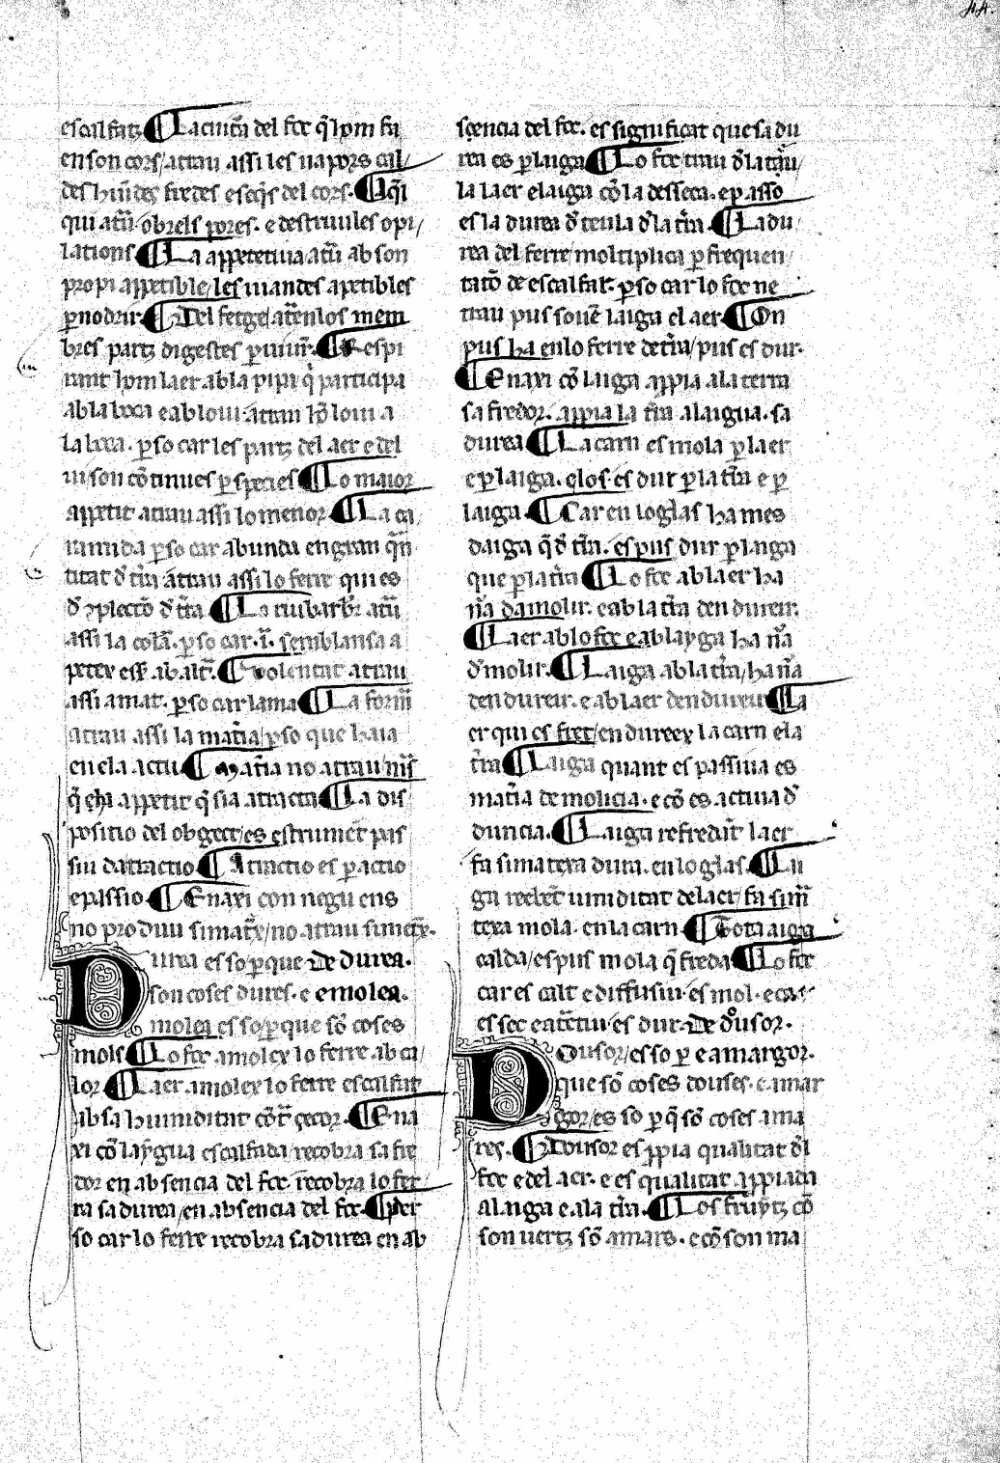 44.
escalfatz ¶ La cinctā del foc q̄ hom fa
en son cors / atrau assi les uapors cal /
des humides fredes e seq̄s del cors. ¶ aq̄l
qui atrau obrels pores. e destruules opi /
lations ¶ La appetetiua atrau ab son
propi appetible / les uiandes apetibles
per nodrir. ¶ Del fetge / atēn los mem
bres partz digestes per uiuir. ¶ Respi
rant hom laer ab la pipa q̄ participa
ab la boca e ab lo ui. atrau hō lo ui a
la boca. ꝑso car les partz del aer e del
ui son cōtinues ꝑ species ¶ Lo maior
appetit atrau assi lo menor ¶ La ca /
ramida ꝑso car abunda en gran qn̄
titat d̄ tr̄a atrau assi lo ferre qui es
d̄ ꝯplecciō d̄ tr̄a ¶ Lo riubarbr̄ atrau
assi la colā. ꝑso car .i. semblansa a
peter ess̄ ab altr̄. ¶ Volentat atrau
assi amat. ꝑso car lama ¶ La formā
atrau assi la matr̄ia / ꝑso que haia
en ela actu ¶ Matr̄ia no atrau / mes
q̄ ẹhi appetit q̄ sia atracta ¶ La dis
positio del obgect / es estrument pas
siu datractio ¶ Atractio es ꝑ actio
e passio ¶ Enaxi con negu ens
no produu si mateix / no atrau si meteix.
Durea es so ꝑque De durea.
son coses dures. e e molea.
molea es so ꝑ que sō coses
mols ¶ Lo foc amolex lo ferre ab ca /
lor ¶ Laer amolex lo ferre escalfat
ab sa humiditat cōtr̄ secor. ¶ Ena
xi cō laygua escalfada recobra sa fre
dor en absencia del foc. recobra lo fer
ra sa durea / en absencia del foc. ¶ Per
so car lo ferre recobra sa durea en ab
scencia del foc. es significat que sa du
rea es ꝑ laiga ¶ Lo foc trau d̄ la tr̄au /
la laer e laiga cō la desseca. e ꝑ asso
es la durea d̄ teula d̄ la tr̄a. ¶ La du /
rea del ferre moltiplica ꝑ frequen
tatō de escalfar. ꝑso car lo foc ne
trau pus souē laiga el aer ¶ On
pus ha en lo ferre de tr̄a / pus es dur.
¶ Enaxi cō laiga appia a la terra
sa fredor. appia la tr̄a a laigua. sa
durea ¶ La carn es mola ꝑ laer
e ꝑ laiga. e los es dur ꝑ la tr̄a e ꝑ
laiga ¶ Car en lo glas ha mes
daiga q̄ d̄ tr̄a. es pus dur ꝑ laiga
que ꝑ la tr̄a ¶ Lo foc ab laer ha
nr̄a da molir. e ab la tr̄a den dureir.
¶ Laer ab lo foc e ab layga ha nr̄a
d̄ molir. ¶ Laiga ab la tr̄a / ha nr̄a
den dureir. e ab laer den dureir ¶ La
er qui es fret / en dureex la carn e la
tr̄a ¶ Laiga quant es passiua es
matr̄ia de molicia. e cō es actiua d̄
duncia. ¶ Laiga refredāt laer
fa si matexa dura. en lo glas. ¶ Lai
ga rechēt umiditat del aer / fa sim
texa mola. en la carn ¶ Tota aiga
calda / es pus mola q̄ freda ¶ Lo foc
car es calt e diffusiu. es mol. e car
es sec e atētiu. es dur. De dousor.
Dousor / es so ꝑ e amargor.
que sō coses douses. e amar
gor / es so ꝑ q̄ sō coses ama
res. ¶ Dousor es ꝓpia qualitat d̄l
foc e del aer. e es qualitat appiada
a laiga e a la tr̄a. ¶ Los fruytz cō
son uertz sō amars. e cō son ma